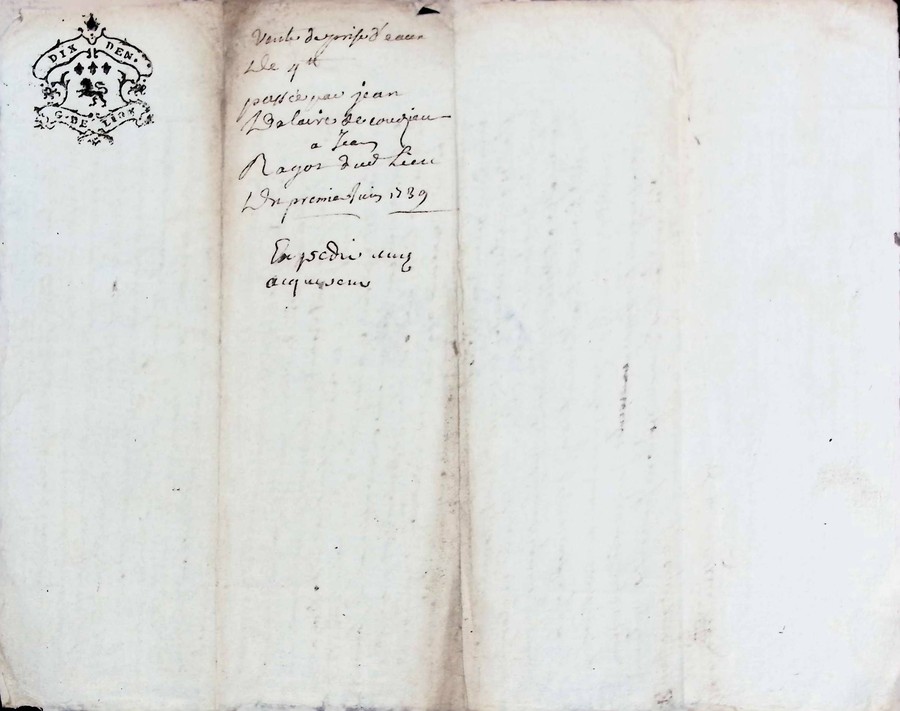 DIX DEN.
G. DE LION
Vente de prise d'eau
De 4 tt
passée par jean
Delaire de
a Jean
Ragot dud Lieu
Du premier Juin 1739
Expedié aux
acquereur